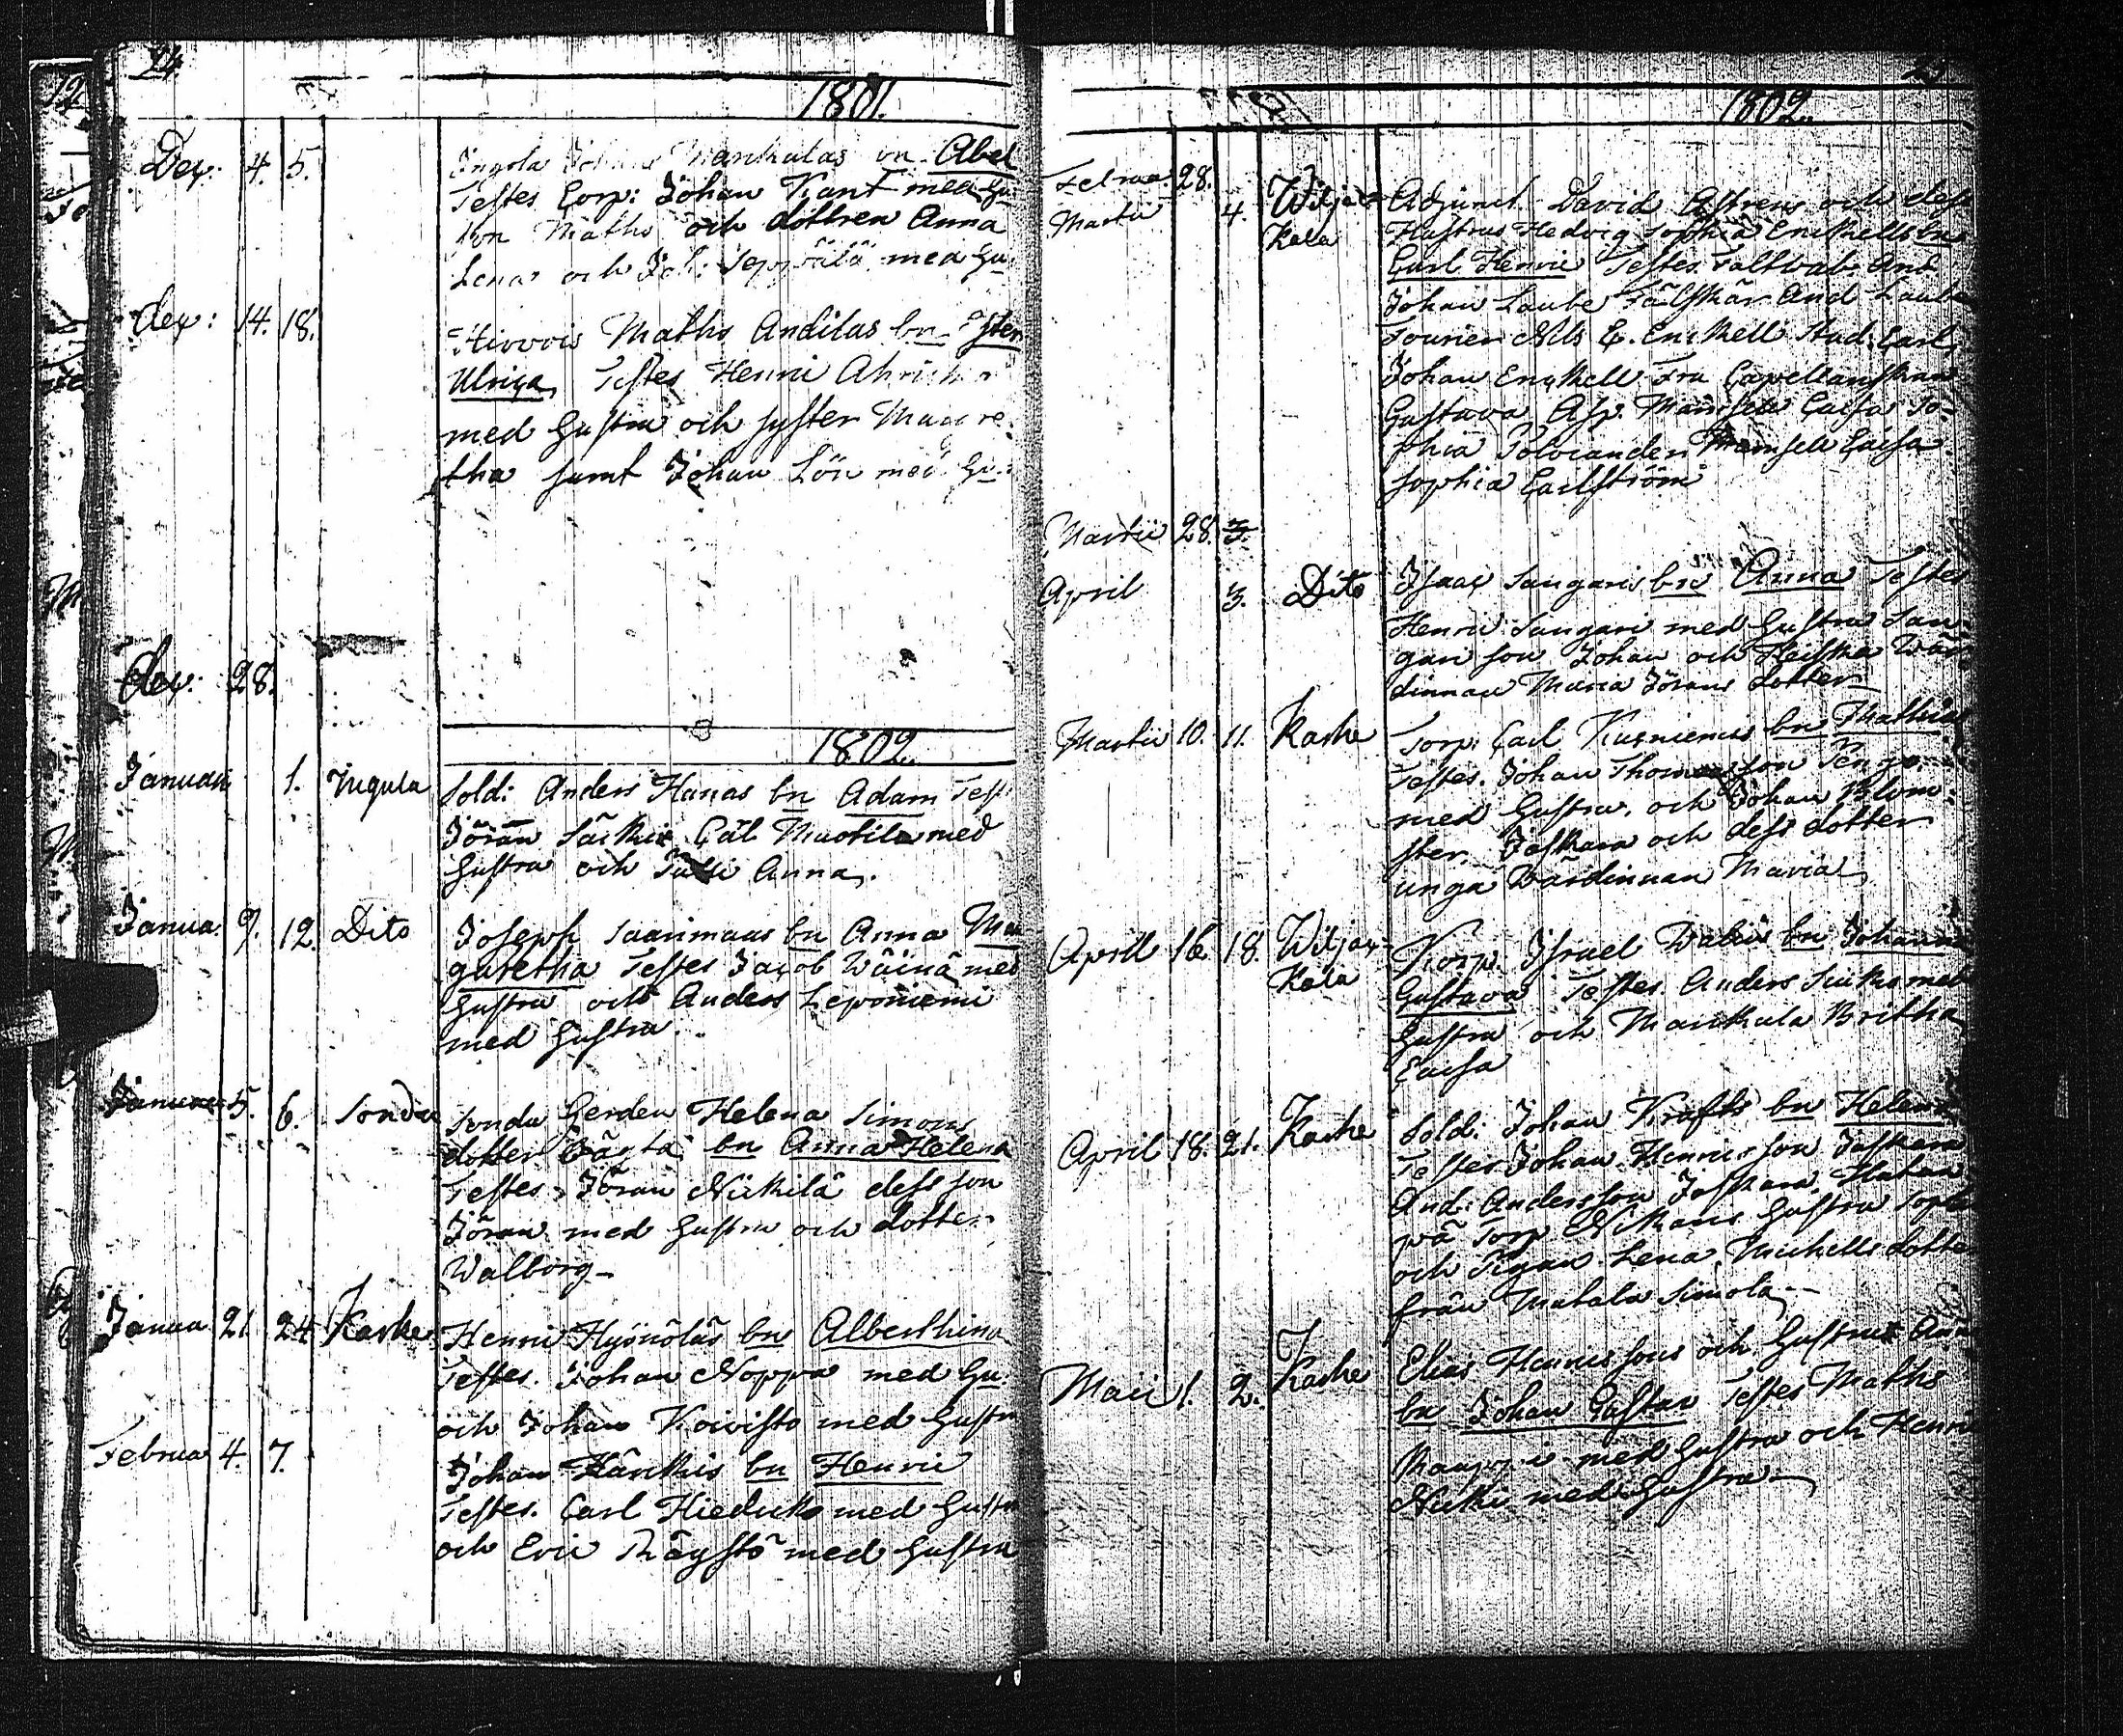 24
1801.
Dex: 4. 5. Ingola Johan Mankalas bn Abel
Testes Corp: Johan Kant med hu
son Maths och dottren Anna
Lena och Joh: Seppälä med hu
dex: 14. 18. Hirvois Maths Andilas bn
Ulrica Testes Henric
med hustru och syster Maagre
tha samt Johan Lön med hu
dex: 28.
1802.
Januari 1. Ingula Sold: Anders Hanas bn Adam Test
Jöran Särkix Cat. Muotila med
hustru och Anna.
Janua. 9. 12. Dito Joseph Saarimaas bn Anna Mar
garetha Testes Jacob Wäinä med
hustru och Anders Leponiemi
med hustru.
Januari 5. 6. Sondu Sondu Gerden Helena Simons
dotter bn Anna Helena
Testes Jöran Nikkilä dess son
Jöran med hustru och dotter
Walborg
Janua 21. 24. Karke Henric Hyönöläs bn Alberthina
Testes. Johan Noppa med hu
och Johan Koivisto med hustru
Februa 4. 7. Johan Kärkkis bn Henric
Testes. Carl Hiedicko med hustru
och Eric Räystö med hustru
25
1802.
Februa. 28. Adjunct. David Astrens och dess
Martii 4. Wiljax Hustrus Hedvig Sophia Enckells bn
Kala Carl Henric Testes Faltwab. And
Johan Laube Fältskär And Laube
Fourier Nils G. Enckell Stud. Carl
Johan Enckell Fru Capellanskan
Gustava Asp. Mamsell Caisa So-
phia Polviander Mamsell Caisa
Sophia Carlström
Martii 28. 3.
April 3. Dito Isaac Sangaris bn Anna Testes
Henric Sangari med hustru San-
gari son Johan och Heiska Wär
dinnan Maria Jörans dotter
Martii 10. 11. Karke Torp: Carl Kusniemis bn Mathias
Testes. Johan Thomasson
med hustru. och Johan Blom-
ster. Jaskara och dess dotter
unga Wärdinnan Maria
April 16. 18. Wiljax- Korp. Israel Walius bn Johanna
Kala Gustava Testes. Anders med
hustru och Mankala Britha
Caisa
April 18. 21. Karke Sold: Johan Krafts bn Helena
Testes Johan Henricsson Jaskara
And: Andersson Jaskara.
på Torp hustru Soph
och Pigan Lena Michells dotter
från Matala Simola
Maii 1. 2. Karke Elias Henricssons och hustrus Anna
bn Johan Gustav Testes Maths
med hustru och Henric
med hustru